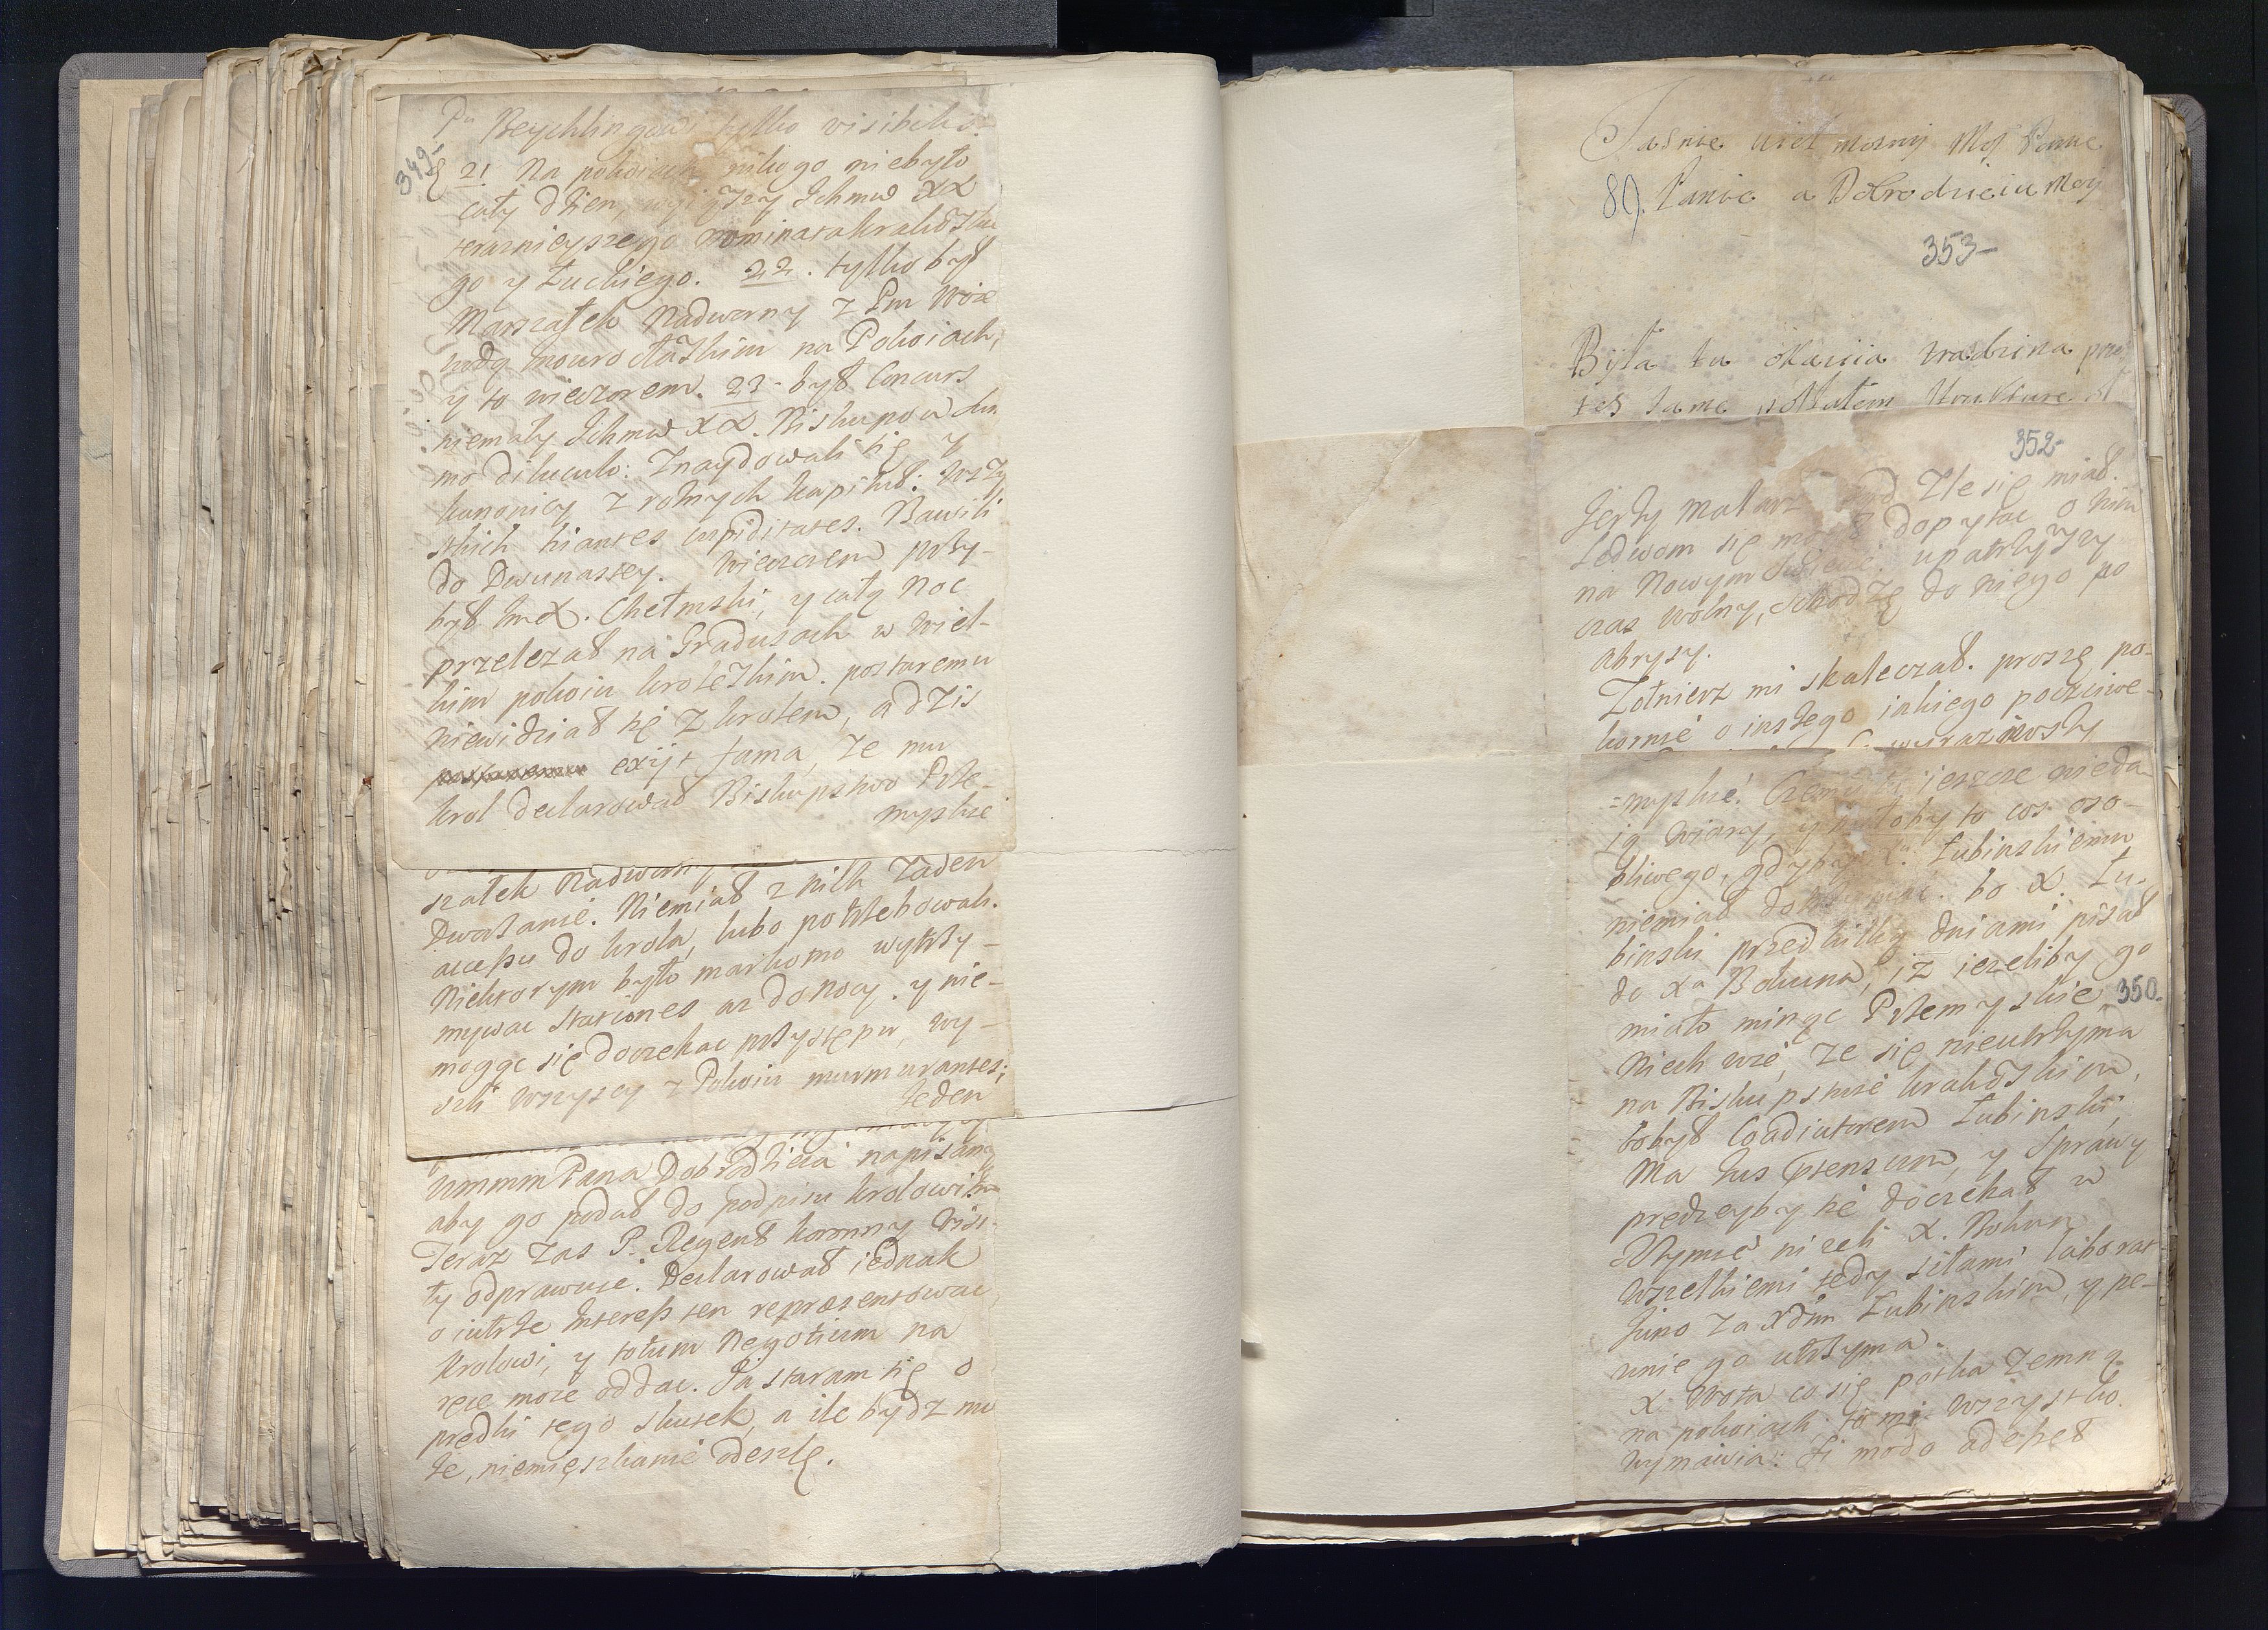 Pu Beychlingowi tylko visibilis.
349
21 Na pokoiach nikogo niebyło
cały dzien, wyiąwszy Ichmw XX
teraznieyszego nominata krakowskie
go y Łuckiego. 22. tylko był
Marszałek Nadworny z Pm Woie
wodą Inowrocłaskim na Pokoiach,
y to wieczorem. 23. był Concurs
niemały Ichmw XX. Biskupow
mo diluculo: Znaydowali się y
kanonicy z roznych kapituł: wszy
stkich hiantes cupiditates. Bawili
do Dwunastey. Wieczorem przy-
był Im X. Chełmski, y całą noc
przelezał na Gradusach w wiel-
kim pokoiu krolewskim. postaremu
niewidział się z krolem, a dzis
exijt fama, ze mu
krol declarował Biskupstwo Prze-
myskie
szałek Nadworny
Dwaranie. Niemiał z nich zaden
accessu do krola, lubo potrzebowali.
Niektorym było markotno wytrzy-
mywac stationes az do nocy. y nie-
mogąc się doczekac przystępu, wy-
szli wszyscy z Pokoiu murmurantes;
Jeden
WmmmPana Dobrodzieia napisany
aby go podał do podpisu krolowi
Teraz zas P. Regent koronny Wisi-
ty odprawuie. Declarował iednak
o iutrze Interess ten repræsentowac
krolowi, y totum Negotium na
ręce moie oddac. Ja staram się o
prędki tego skutek, a ile bydz mo
ze, niemięszkanie odeszlę.
Jasnie Wiel mozny Mój Panie
89. Panie a Dobrodzieiu Moy
353
Była tu okazia
352
Jerzy Malarz Zle się miał.
Ledwom się mogł dopytac o nim
na Nowym Swiecie. upatrzywszy
czas wolny, schodzę do niego po
abryszy.
Zołnierz mi skaleczał. proszę po-
kornie o inszego iakiego poczciwe-
-myskie. Czemu ieszcze nieda
ią wiary, y byłoby to cos oso-
bliwego, gdyby Xu Łubinskiemu
niemiał dotrzymac. bo X. Łu-
binski przed kilką dniami pisał
do Xa Bokuna, iz iezeliby go
miało minąc Przemyskie, 350.
Niech wie, ze się nieutrzyma
na Biskupstwie krakowskim,
bobył Coadiutorem Łubinski,
Ma Jus Prensum, y Sprawy
prędzeyby się doczekał w
Rzymie nizeli X. Bokun.
Wszelkiemi tedy siłami laborat
Juno za Xdzm Łubinskim, y pe-
wnie go utrzyma.
X. Wota co się potka zemną
na pokoiach to mi wszystko
wymawia: Ji modo adesset